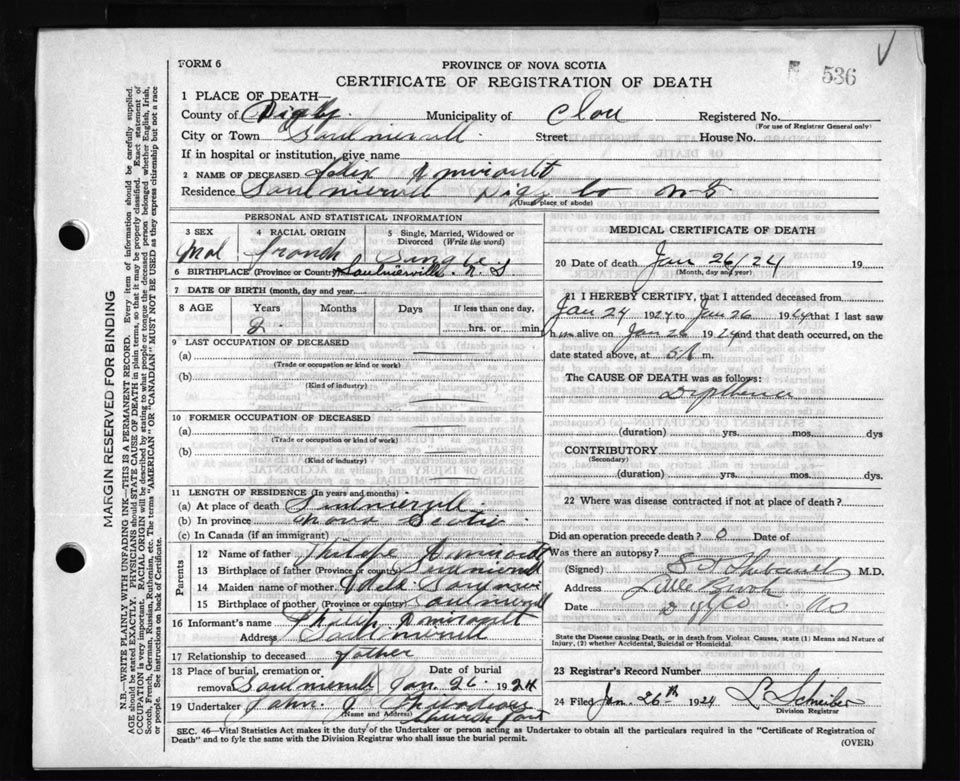 FORM 6
PROVINCE OF NOVA SCOTIA
CERTIFICATE OF REGISTRATION OF DEATH
536
1 PLACE OF DEATH—
County of Digby. Municipality of Clare Registered No.
(For use of Registrar General only)
City or Town Saulnierville Street House No.
If in hospital or institution, give name
2 NAME OF DECEASED Felix Amirault
Residence Saulnierville Digby Co N S
(Usual place of abode)
PERSONAL AND STATISTICAL INFORMATION
3 SEX 4 RACIAL ORIGIN 5 Single, Married, Widowed or Divorced (Write the word)
Mal french Single
6 BIRTHPLACE (Province or Country) Saulnierville. N. S
7 DATE OF BIRTH (month, day and year)
8 AGE Years Months Days If less than one day,
2 hrs. or min.
9 LAST OCCUPATION OF DECEASED
(a)
(Trade or occupation or kind of work)
(b)
(Kind of industry)
10 FORMER OCCUPATION OF DECEASED
(a)
(Trade or occupation or kind of work)
(b)
(Kind of industry)
11 LENGTH OF RESIDENCE (In years and months)
(a) At place of death Saulnierville
(b) In province Nova Scotia
(c) In Canada (if an immigrant)
Parents
12 Name of father Philippe Amirault
13 Birthplace of father (Province or country) Saulnierville
14 Maiden name of mother
15 Birthplace of mother (Province or country) Saulnierville
16 Informant's name Philip Amirault
Address Saulnierville
17 Relationship to deceased father
18 Place of burial, cremation or removal Saulnierville Date of burial Jan. 26 1924
19 Undertaker John. J. Thibodeau
(Name and Address) Church Point
MEDICAL CERTIFICATE OF DEATH
20 Date of death Jan 26/24 19
(Month, day and year)
21 I HEREBY CERTIFY, that I attended deceased from
Jan 24 1924 to Jan 26 1924 that I last saw
h im alive on Jan 26 1924 and that death occurred, on the
date stated above, at m.
The CAUSE OF DEATH was as follows:
Diphtheria
(duration) yrs. mos. dys
CONTRIBUTORY
(Secondary)
(duration) yrs. mos. dys
22 Where was disease contracted if not at place of death?
Did an operation precede death? 0 Date of
Was there an autopsy?
(Signed) M.D.
Address Little Brook
Date Digby Co NS
State the Disease causing Death, or in death from Violent Causes, state (1) Means and Nature of
Injury, (2) whether Accidental, Suicidal or Homicidal.
23 Registrar's Record Number
24 Filed Jan. 26th 1924 L Schreiber
Division Registrar
SEC. 46—Vital Statistics Act makes it the duty of the Undertaker or person acting as Undertaker to obtain all the particulars required in the "Certificate of Registration of
Death" and to fyle the same with the Division Registrar who shall issue the burial permit.
(OVER)
MARGIN RESERVED FOR BINDING
N.B.—WRITE PLAINLY WITH UNFADING INK—THIS IS A PERMANENT RECORD. Every item of information should be carefully supplied.
AGE should be stated EXACTLY. PHYSICIANS should STATE CAUSE OF DEATH in plain terms, so that it may be properly classified. Exact statement of
OCCUPATION is very important. RACIAL ORIGIN will be described by stating to what people or tongue the deceased person belonged whether English, Irish,
Scotch, French, German, Russian, Ruthenian, etc. The terms "AMERICAN" OR "CANADIAN" MUST NOT BE USED as they express citizenship but not a race
or people. See instructions on back of Certificate.